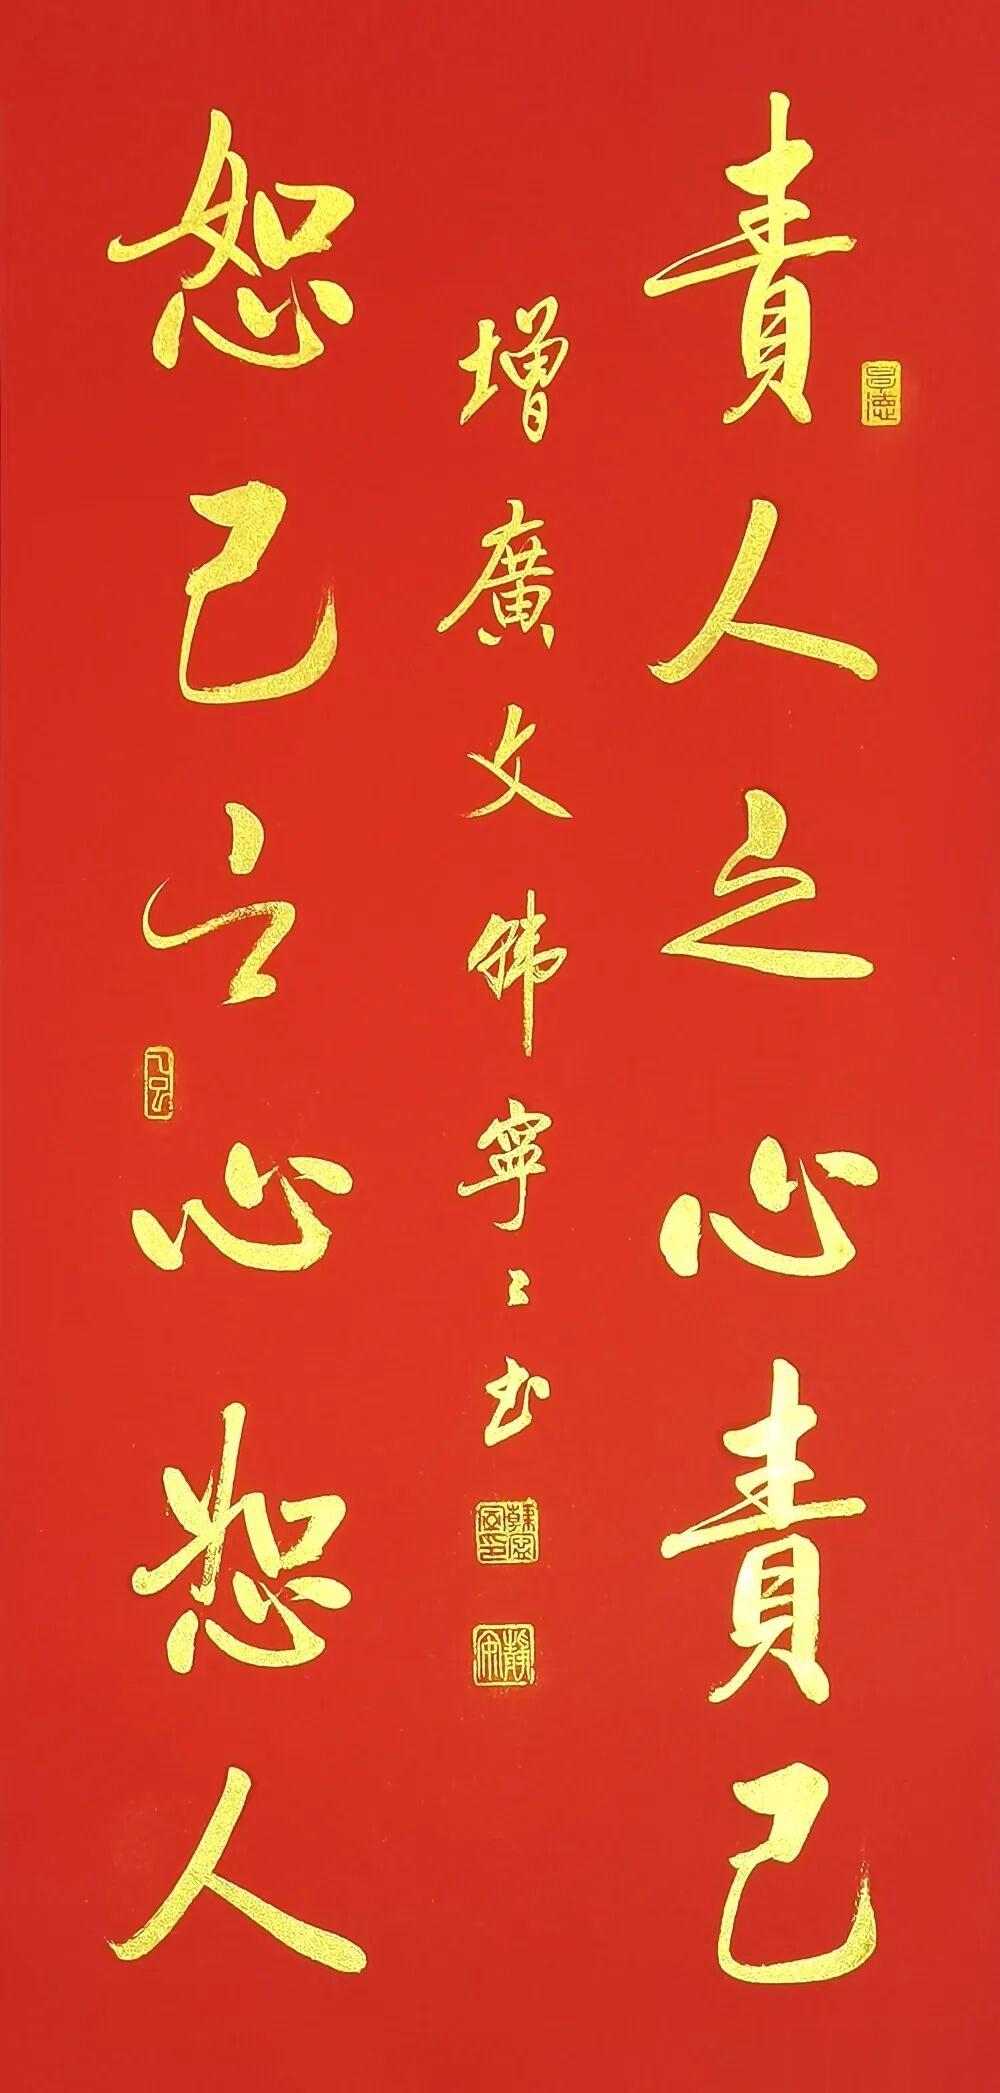 責人之心責己
恕己之心恕人
增廣文韩寧々书